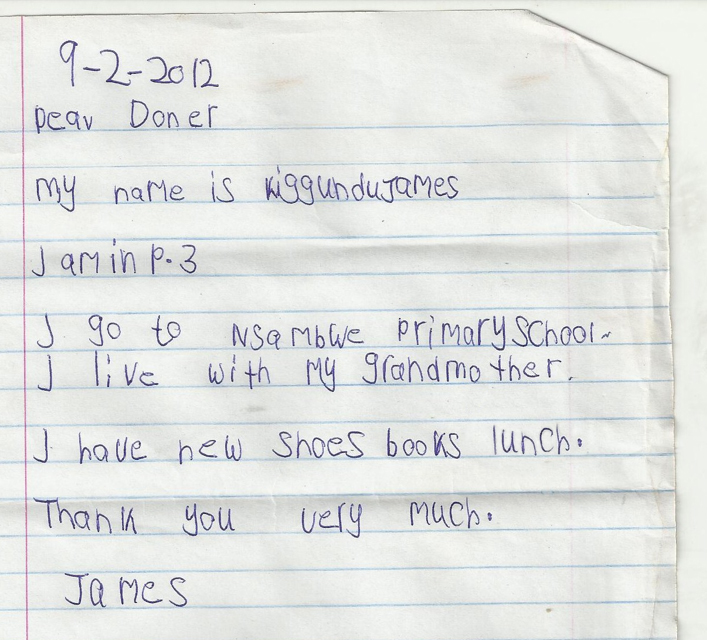 9-2-2012
Dear Doner
My name is KiggunduJames
I am in P.3
I go to Nsambwe primary School.
I live with my grandmother.
I have new shoes books lunch.
Thank you very much.
James